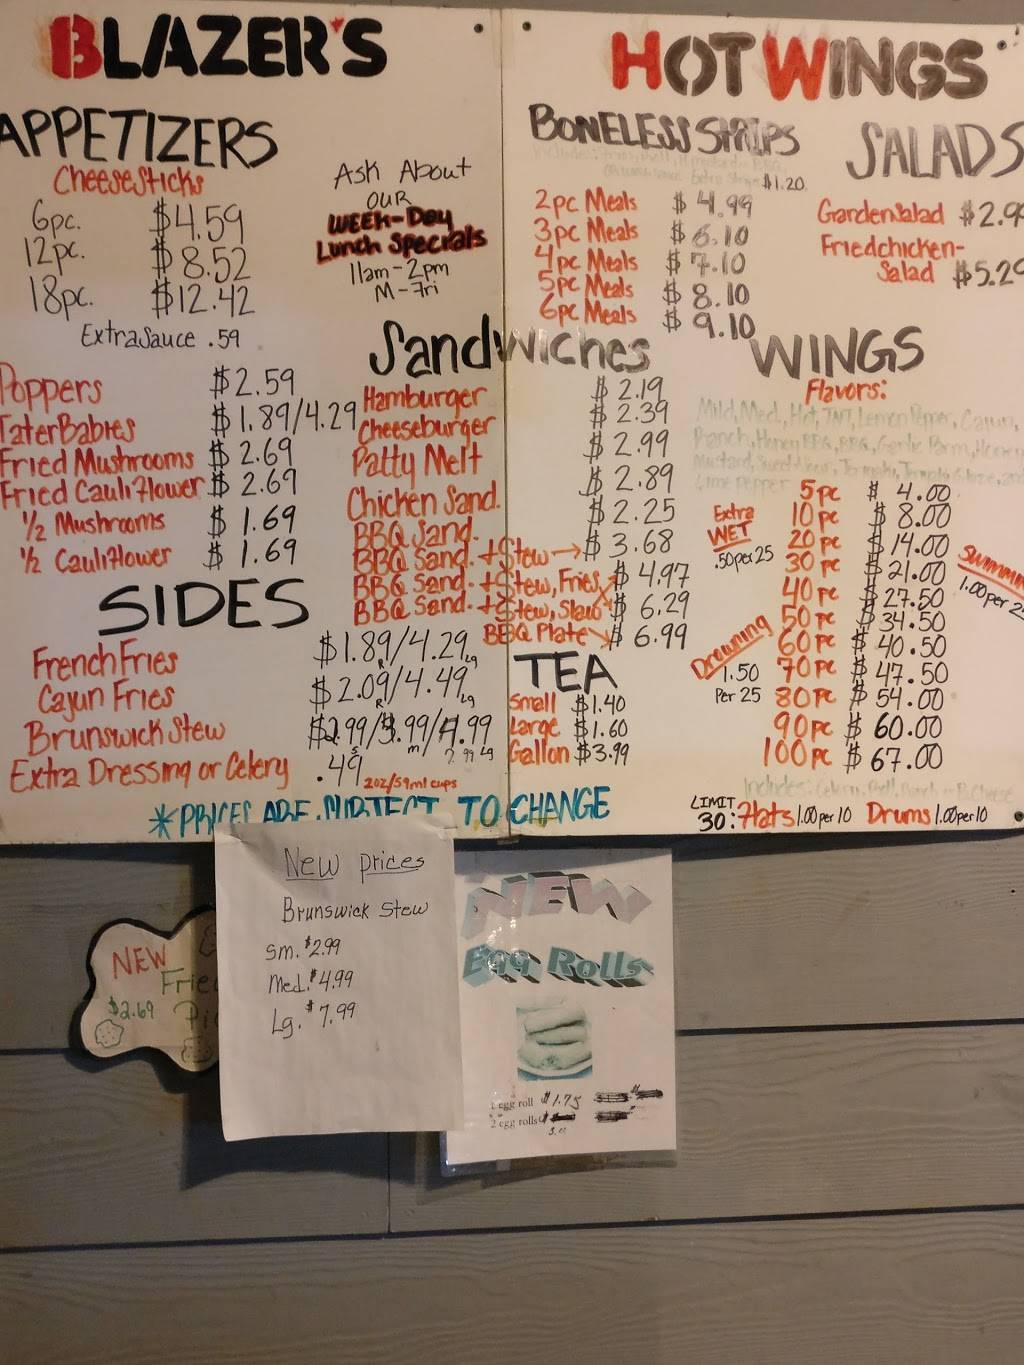 BLAZER'S
HOT WINGS
APPETIZERS
CheeseSticks
6pc. $4.59
12pc. $8.52
18pc. $12.42
Extra Sauce .59
Poppers $2.59
TaterBabies $1.89/4.29
Fried Mushrooms $2.69
Fried Cauliflower $2.69
1/2 Mushrooms $1.69
1/2 Cauliflower $1.69
Ask About
OUR
WEEK-Day
Lunch Specials
11am-2pm
M-Fri
SIDES
French Fries $1.89/4.29
R Lg
Cajun Fries $2.09/4.49
R Lg
Brunswick Stew $2.99/3.99/4.99
S m 7.99 Lg
Extra Dressing or Celery .49 2oz/59ml cups
Sandwiches
Hamburger $2.19
Cheeseburger $2.39
Patty Melt $2.99
Chicken Sand. $2.89
BBQ Sand. $2.25
BBQ Sand. + Stew $3.68
BBQ Sand. + Stew, Fries $4.97
BBQ Sand. + Stew, Slaw $6.29
BBQ Plate $6.99
TEA
Small $1.40
Large $1.60
Gallon $3.99
BONELESS STRIPS
Extra $1.20
2pc Meals $4.99
3pc Meals $6.10
4pc Meals $7.10
5pc Meals $8.10
6pc Meals $9.10
SALADS
Gardensalad $2.9
Friedchicken-
Salad $5.29
WINGS
Flavors:
Mild, Med, Hot, TNT, Lemon Pepper, Cajun,
Ranch, Honey BBQ, BBQ, Garlic Parm, Honey
Lime Pepper
5pc $4.00
10pc $8.00
20pc $14.00
30pc $21.00
40pc $27.50
50pc $34.50
60pc $40.50
70pc $47.50
80pc $54.00
90pc $60.00
100pc $67.00
Extra
WET
.50 per 25
Drowning
1.50
Per 25
1.00 per
Includes: Celery,
LIMIT
30: Flats 1.00 per 10 Drums 1.00 per 10
*PRICES ARE SUBJECT TO CHANGE
New prices
Brunswick Stew
Sm. $2.99
Med. $4.99
Lg. $7.99
NEW
$2.69
NEW
Egg Rolls
1 egg roll $1.75
2 egg rolls